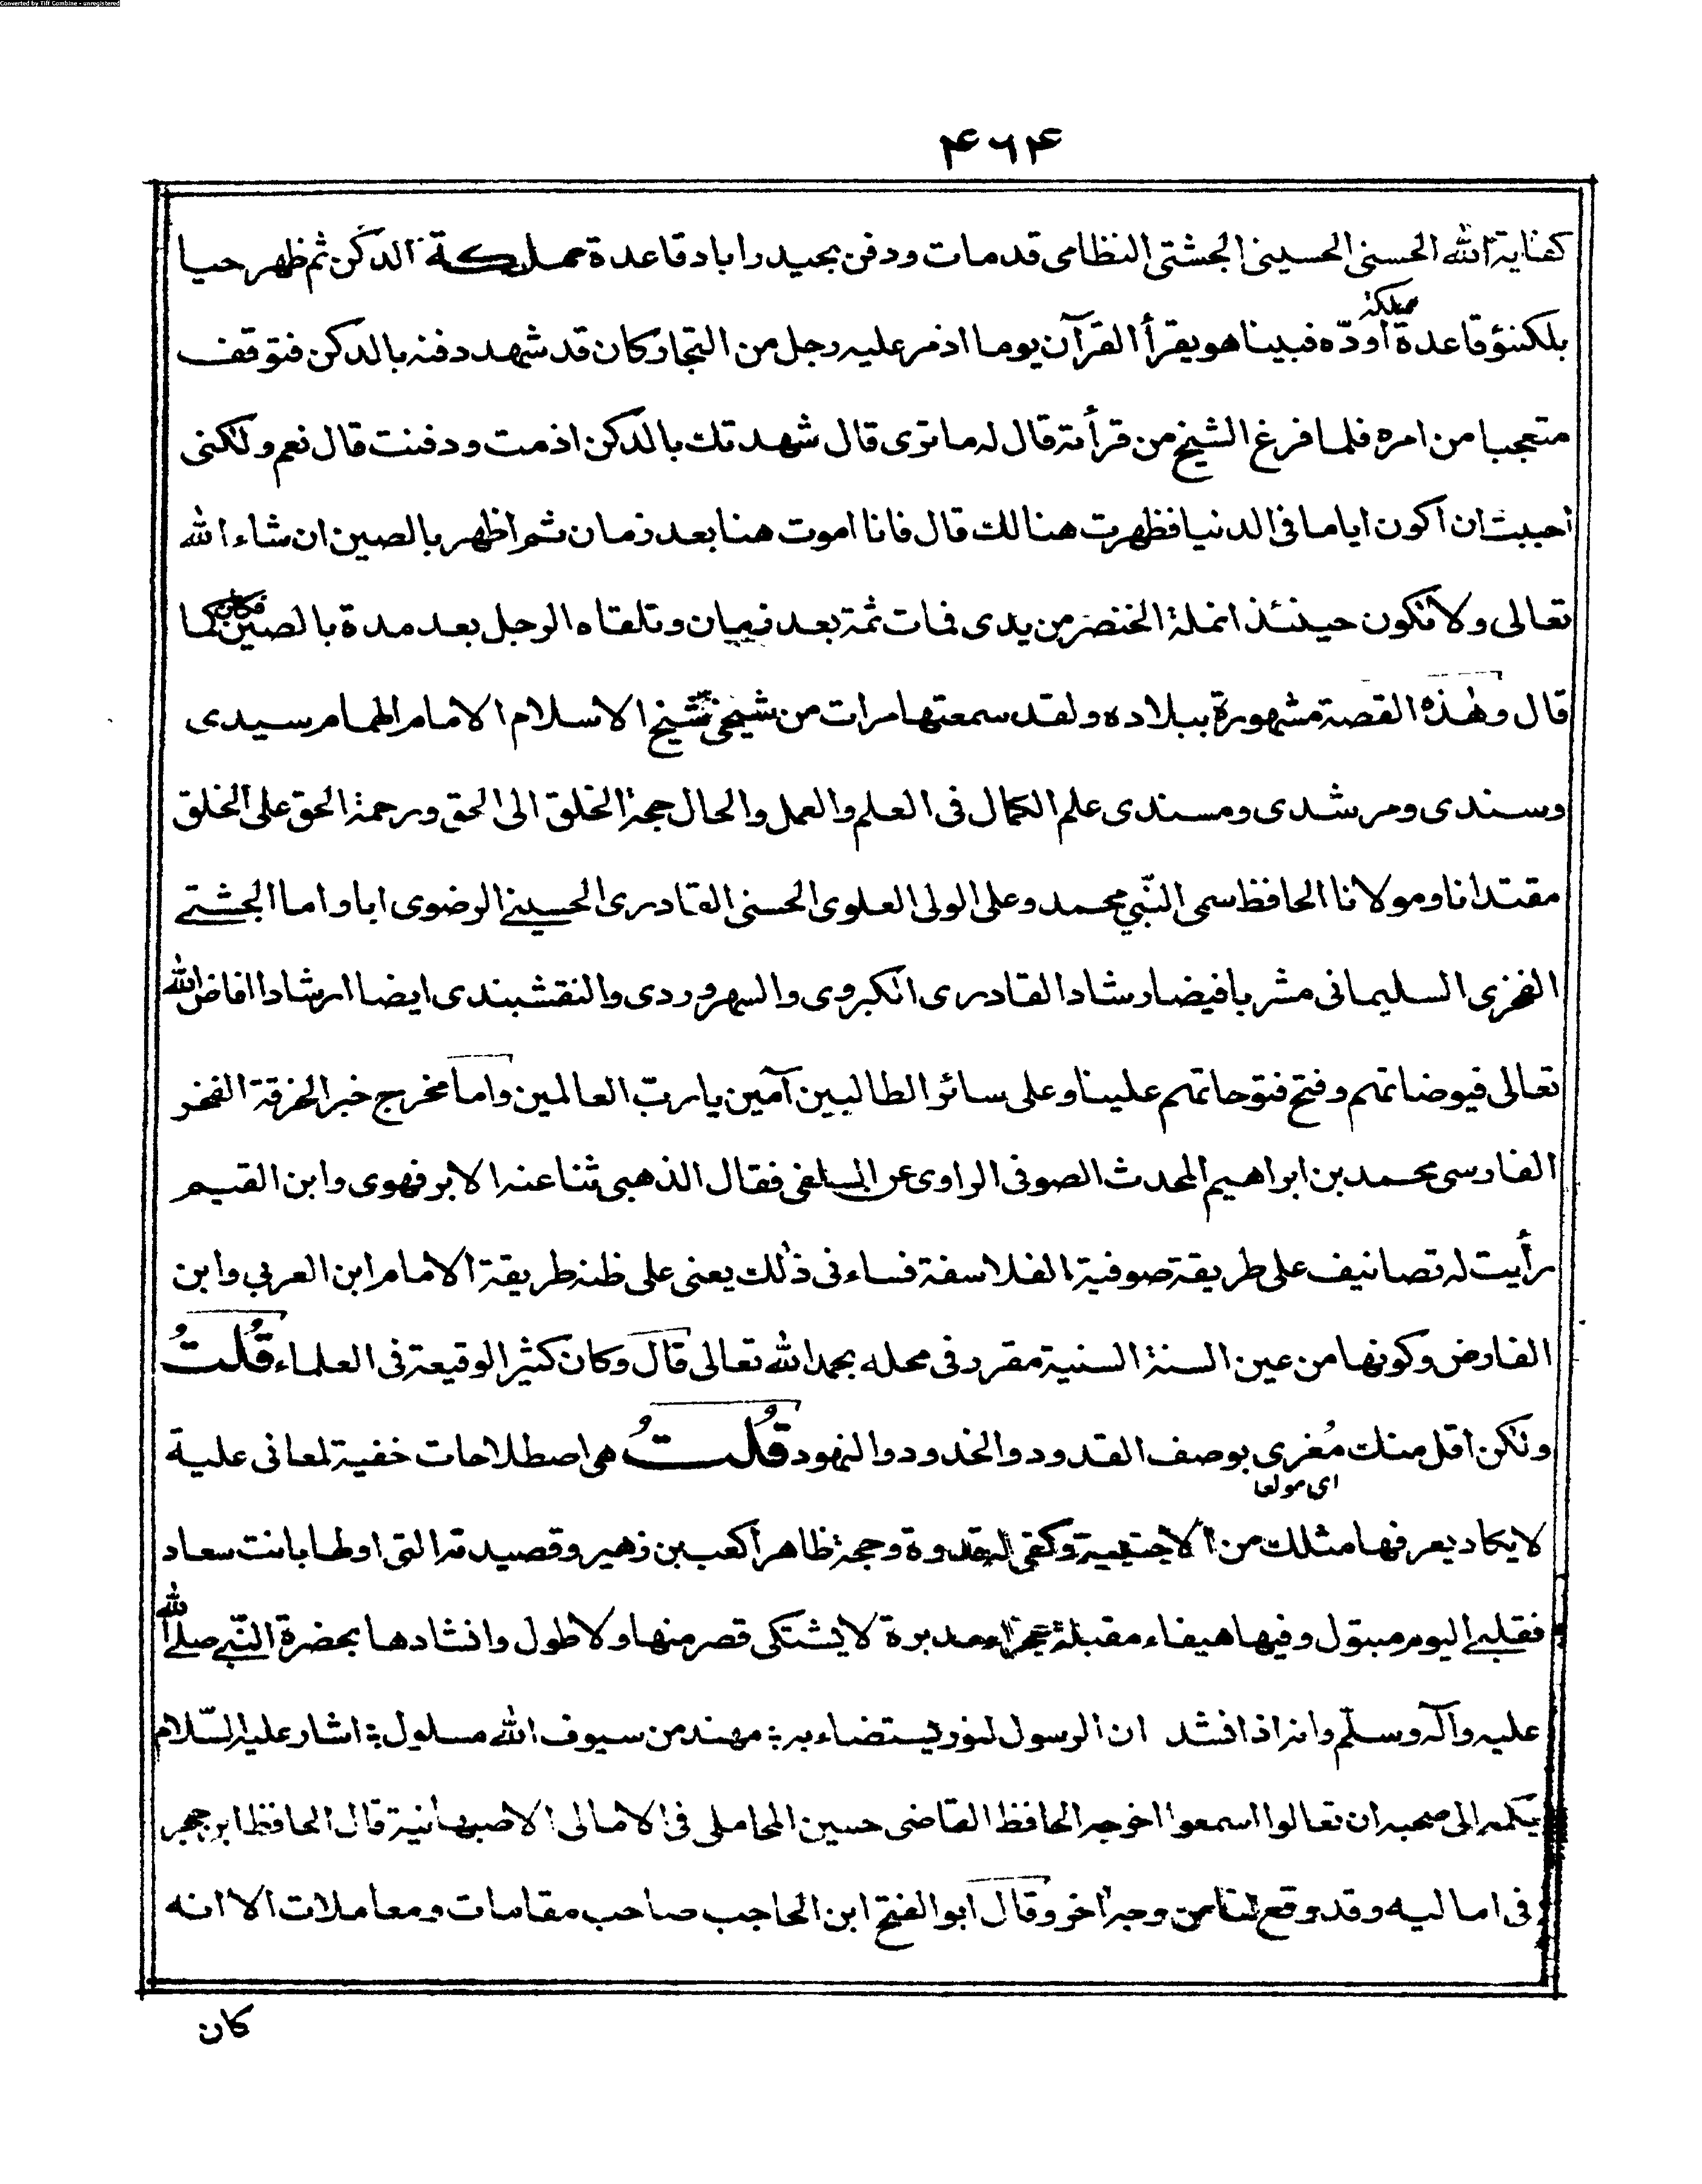 Converted by Tiff Combine - unregistered
۴۶۴
كفاية الله الحسنى الحسينى الجشتى النظامى قد مات ودفن بحيدراباد قاعدة مملكة الدكن ثم ظهر حيا
بلكنؤ قاعدة مملكة اودّه فبينا هو يقرأ القرآن يوما اذ مر عليه رجل من التجار كان قد شهد دفنه بالدكن فتوقف
متعجبا من امره فلما فرغ الشيخ من قرأته قال له ما ترى قال شهدتك بالدكن اذ مت ودفنت قال نعم ولكنى
احببت ان اكون اياما فى الدنيا فظهرت هنالك قال فانا اموت هنا بعد زمان ثم اظهر بالصين ان شاء الله
تعالى ولا تكون حينئذ انملة الخنصر من يدى فمات ثمة بعد زمان وتلقاه الرجل بعد مدة بالصين فكان كما
قال وهٰذه القصة مشهورة ببلاده ولقد سمعتها مرات من شيخى شيخ الاسلام الامام الهمام سيدى
وسندى ومرشدى ومسندى علم الكمال فى العلم والعمل والحال حجة الخلق الى الحق ورحمة الحق على الخلق
مقتدانا ومولانا الحافظ سمى النّبي محمد وعلى الولى العلوى الحسنى القادرى الحسينے الرضوى ابا واما الجشتے
الفخرى السليمانى مشربا فيضا رشاد القادرى الكبروى والسهروردى والنقشبندى ايضا ارشادا افاض الله
تعالى فيوضاتهم وفتح فتوحاتهم علينا وعلى سائر الطالبين آمين يا ربّ العالمين واما مخرج خبر الخرقة الفخر
الفارسى محمد بن ابراهيم المحدث الصوفى الراوى عن السلفى فقال الذهبى ثنا عنه الابرقهوى وابن القيم
رأيت له تصانيف على طريقة صوفية الفلاسفة فساء فى ذٰلك يعنى على ظنه طريقة الامام ابن العربي وابن
الفارض وكونها من عين السنة السنية مقرر فى محله بحمد الله تعالى قال وكان كثير الوقيعة فى العلماء قُلتُ
ولكن اقل منك مُغرى بوصف القدود والخدود والنهود قُلتُ هى اصطلاحات خفية لمعانى علية
اى مولعا
لا يكاد يعرفها مثلك من الاجنبية وكفى له قدوة وحجة ظاهرا كعب بن زهير وقصيدته التى اولها بانت سعاد
فقلبے اليوم مبتول وفيها هيفاء مقبلة عجزاء مدبرة لا يشتكى قصر منها ولا طول وانشادها بحضرة النّبے صلے الله
عليه وآله وسلّم وانه اذ انشد ان الرسول لنور يستضاء به ؛ مهند من سيوف الله مسلول ؛ اشار عليه السّلام
بكمه الى صحبه ان تعالوا اسمعوا اخرجه الحافظ القاضى حسين المحاملى فى الامالى الاصبهانية قال الحافظ ابن حجر
فى اماليه وقد وقع لنا من وجه اٰخر وقال ابو الفتح ابن الحاجب صاحب مقامات ومعاملات الا انه
كان